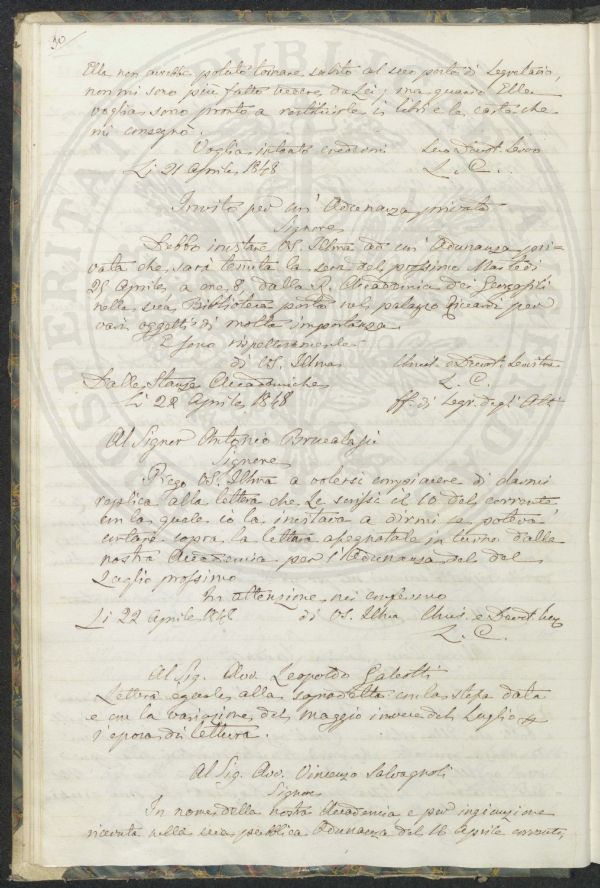 30
Ella non avrebbe potuto tornare subito al suo posto di Segretario,
non mi sono più fatto vedere da Lei; ma quando Ella
voglia sono pronto a restituirle i libri e le carte che
mi consegnò.
Voglia intanto credermi Suo Devot. Servo
Li 21 Aprile 1848 L. C.
Invito per un' Adunanza privata
Signore
Debbo invitare VS. Illma ad un' Adunanza pri-
vata che sarà tenuta la sera del prossimo Martedì
25 Aprile a ore 8, dalla R. Accademia dei Georgofili
nella sua Biblioteca posta nel palazzo Riccardi per
vari oggetti di molta importanza.
E sono rispettosamente
di VS. Illma Umil. e Devot. Servitore
Dalle Stanze Accademiche L. C.
Li 22 Aprile 1848 ff. di Segr. degl' Atti
Al Signor Antonio
Signore
Prego VS. Illma a volersi compiacere di darmi
replica alla lettera che Le scrissi il 10 del corrente
con la quale io la invitava a dirmi se poteva
la lettura assegnatale in turno dalla
nostra Accademia per l'Adunanza del dal
Luglio prossimo
In attenzione mi confermo
Li 22 Aprile 1848 di VS. Illma Umil. e Devot.
L. C.
Al Sig. Avv. Leopoldo Galeotti
Lettera eguale alla sopradetta con la stessa data
e con la variazione del Maggio invece del Luglio
epoca di lettura.
Al Sig. Avv. Vincenzo Salvagnoli
Signore
In nome della nostra Accademia e per ingiunzione
ricevuta nella sua pubblica Adunanza del 16 Aprile corrente,